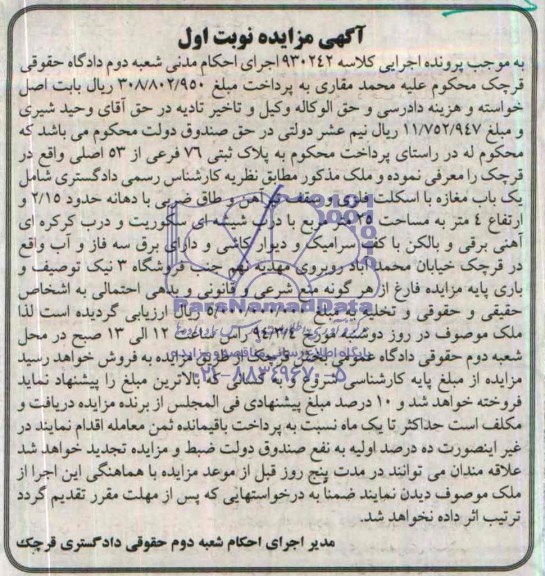 آگهی مزایده نوبت اول
به موجب پرونده اجرایی کلاسه ۹۳۰۲۴۲ اجرای احکام مدنی شعبه دوم دادگاه حقوقی
قرچک محکوم علیه محمد مقاری به پرداخت مبلغ ۳۰۸/۸۰۲/۹۵۰ ریال بابت اصل
خواسته و هزینه دادرسی و حق الوکاله وکیل و تاخیر تادیه در حق آقای وحید شیری
و مبلغ ۱۱/۷۵۲/۹۴۷ ریال نیم عشر دولتی در حق صندوق دولت محکوم می باشد که
محکوم له در راستای پرداخت محکوم به پلاک ثبتی ۷۶ فرعی از ۵۳ اصلی واقع در
قرچک را معرفی نموده و ملک مذکور مطابق نظریه کارشناس رسمی دادگستری شامل
یک باب مغازه با اسکلت فلزی و سقف تیرآهن و طاق ضربی با دهانه حدود ۲/۱۵ و
ارتفاع ۴ متر به مساحت ۲۵ متر مربع با درب شیشه ای سکوریت و درب کرکره ای
آهنی برقی و بالکن با کف سرامیک و دیوار کاشی و دارای برق سه فاز و آب واقع
در قرچک خیابان محمد آباد روبروی مهدیه نهم جنب فروشگاه ۳ نیک توصیف و
باری پایه مزایده فارغ از هر گونه منع شرعی و قانونی و بدهی احتمالی به اشخاص
حقیقی و حقوقی و تخلیه به مبلغ ریال ارزیابی گردیده است لذا
ملک موصوف در روز دوشنبه مورخ ۹۴/۳/۴ راس ساعت ۱۲ الی ۱۳ صبح در محل
شعبه دوم حقوقی دادگاه عمومی بخش قرچک از طریق مزایده به فروش خواهد رسید
مزایده از مبلغ پایه کارشناسی شروع و به کسانی که بالاترین مبلغ را پیشنهاد نماید
فروخته خواهد شد و ۱۰ درصد مبلغ پیشنهادی فی المجلس از برنده مزایده دریافت و
مکلف است حداکثر تا یک ماه نسبت به پرداخت باقیمانده ثمن معامله اقدام نمایند در
غیر اینصورت ده درصد اولیه به نفع صندوق دولت ضبط و مزایده تجدید خواهد شد
علاقه مندان می توانند در مدت پنج روز قبل از موعد مزایده با هماهنگی این اجرا از
ملک موصوف دیدن نمایند ضمناً به درخواستهایی که پس از مهلت مقرر تقدیم گردد
ترتیب اثر داده نخواهد شد.
مدیر اجرای احکام شعبه دوم حقوقی دادگستری قرچک
ParsNamadData
پایگاه اطلاع رسانی مناقصه و مزایده
۰۲۱-۸۸۳۴۹۶۷۰-۵